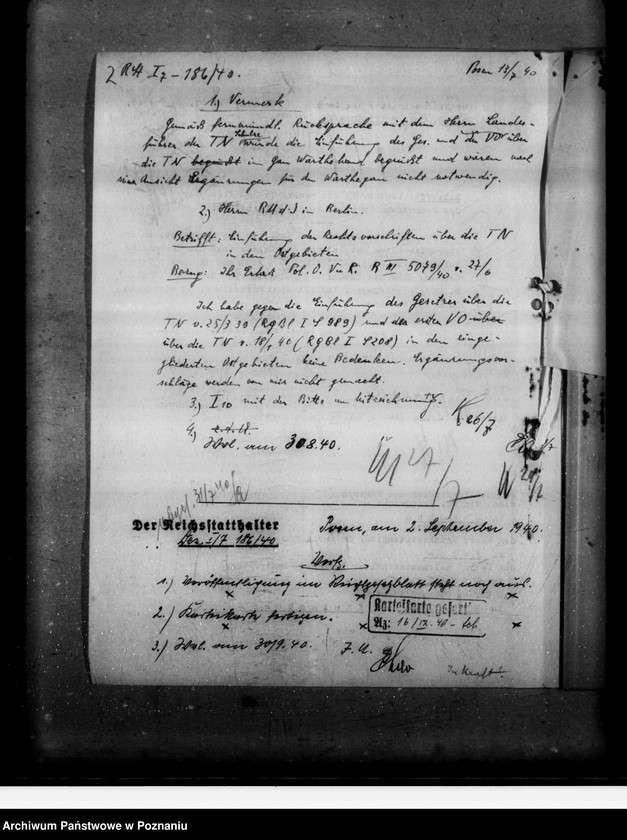 2 RStH I/7 – 186/40.
Posen 13/7 40
1.) Vermerk
Gemäß fernmündl. Rücksprache mit dem Herrn Landes-
führer der TN wurde die Einführung des Ges. und der VO über
die TN begrüßt in Gau Wartheland begrüßt und wären nach
seiner Ansicht Ergänzungen für den Warthegau nicht notwendig.
2.) Herrn RMdJ in Berlin.
Betrifft: Einführung der Rechtsvorschriften über die TN
in den Ostgebieten
Bezug: Ihr Erlaß Pol. O. Vu R. R III 5079/40 v. 27/6
Ich habe gegen die Einführung des Gesetzes über die
TN v. 25/3 39 (RgBl I S 989) und der ersten VO über
über die TN v. 18/1 40 (RgBl I S 208) in den einge-
gliederten Ostgebieten keine Bedenken. Ergänzungsvor-
schläge werden von mir nicht gemacht.
3.) I/10 mit der Bitte um Mitzeichnung.
K 26/7
4.) z. d. A.
Wvl. am 30 8. 40.
27/7
31/7 40
Der Reichsstatthalter
Dez. I/7 186/40
Posen, am 2. September 1940.
Verf.
1.) Veröffentligung im Reichsgesetzblatt steht noch aus.
2.) Karteikarte fertigen.
Karteikarte gefert.
Az: 16/IX. 40 –
3.) Wvl. am 30/9. 40.
J. A.
In Kraft?
Archiwum Państwowe w Poznaniu